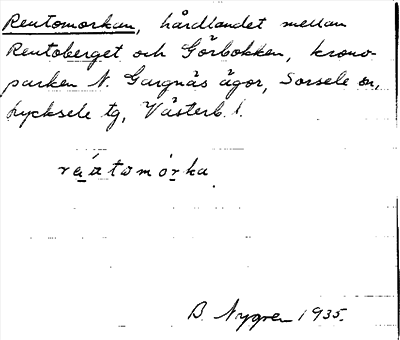 Rentomorkan, hårdlandet mellan
Rentoberget och Görbokken, krono-
parken N. Gargnäs ägor, Sorsele sn,
Lycksele tg, Västerb. l.
B. Nygren 1935.